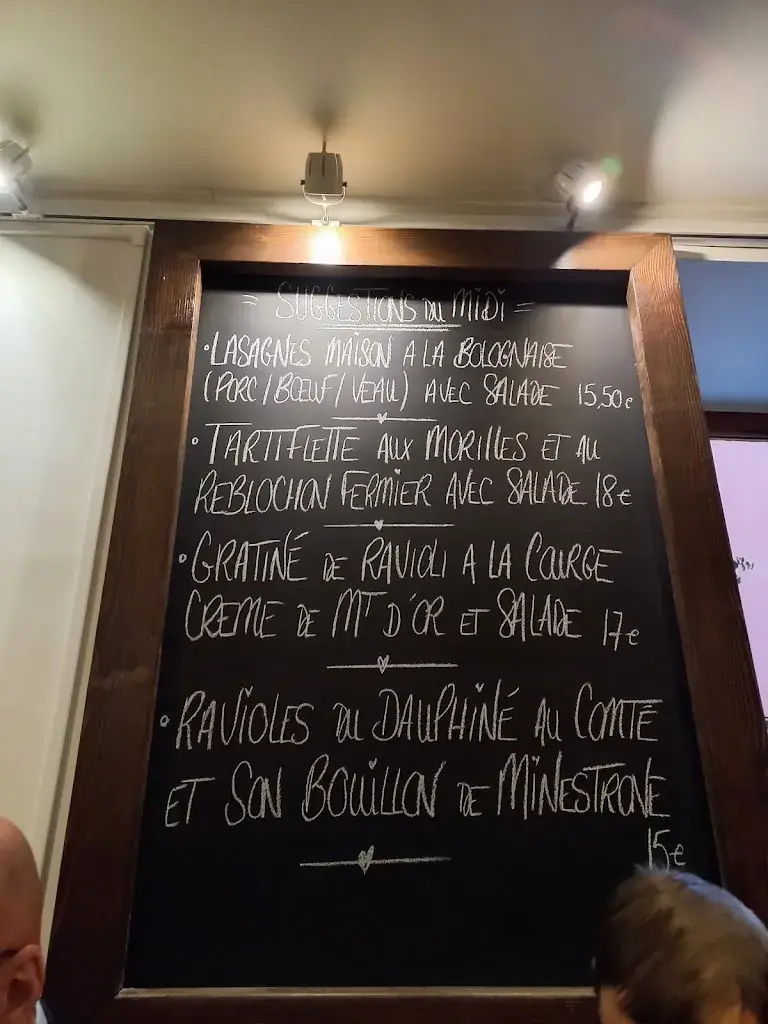 = SUGGESTIONS DU MIDI =
• LASAGNES MAISON A LA BOLOGNAISE
(PORC / BŒUF / VEAU) AVEC SALADE 15,50€
• TARTIFLETTE AUX MORILLES ET AU
REBLOCHON FERMIER AVEC SALADE 18€
• GRATINÉ DE RAVIOLI A LA COURGE
CREME DE MT D'OR ET SALADE 17€
• RAVIOLES DU DAUPHINÉ AU COMTE
ET SON BOUILLON DE MINESTRONE
15€